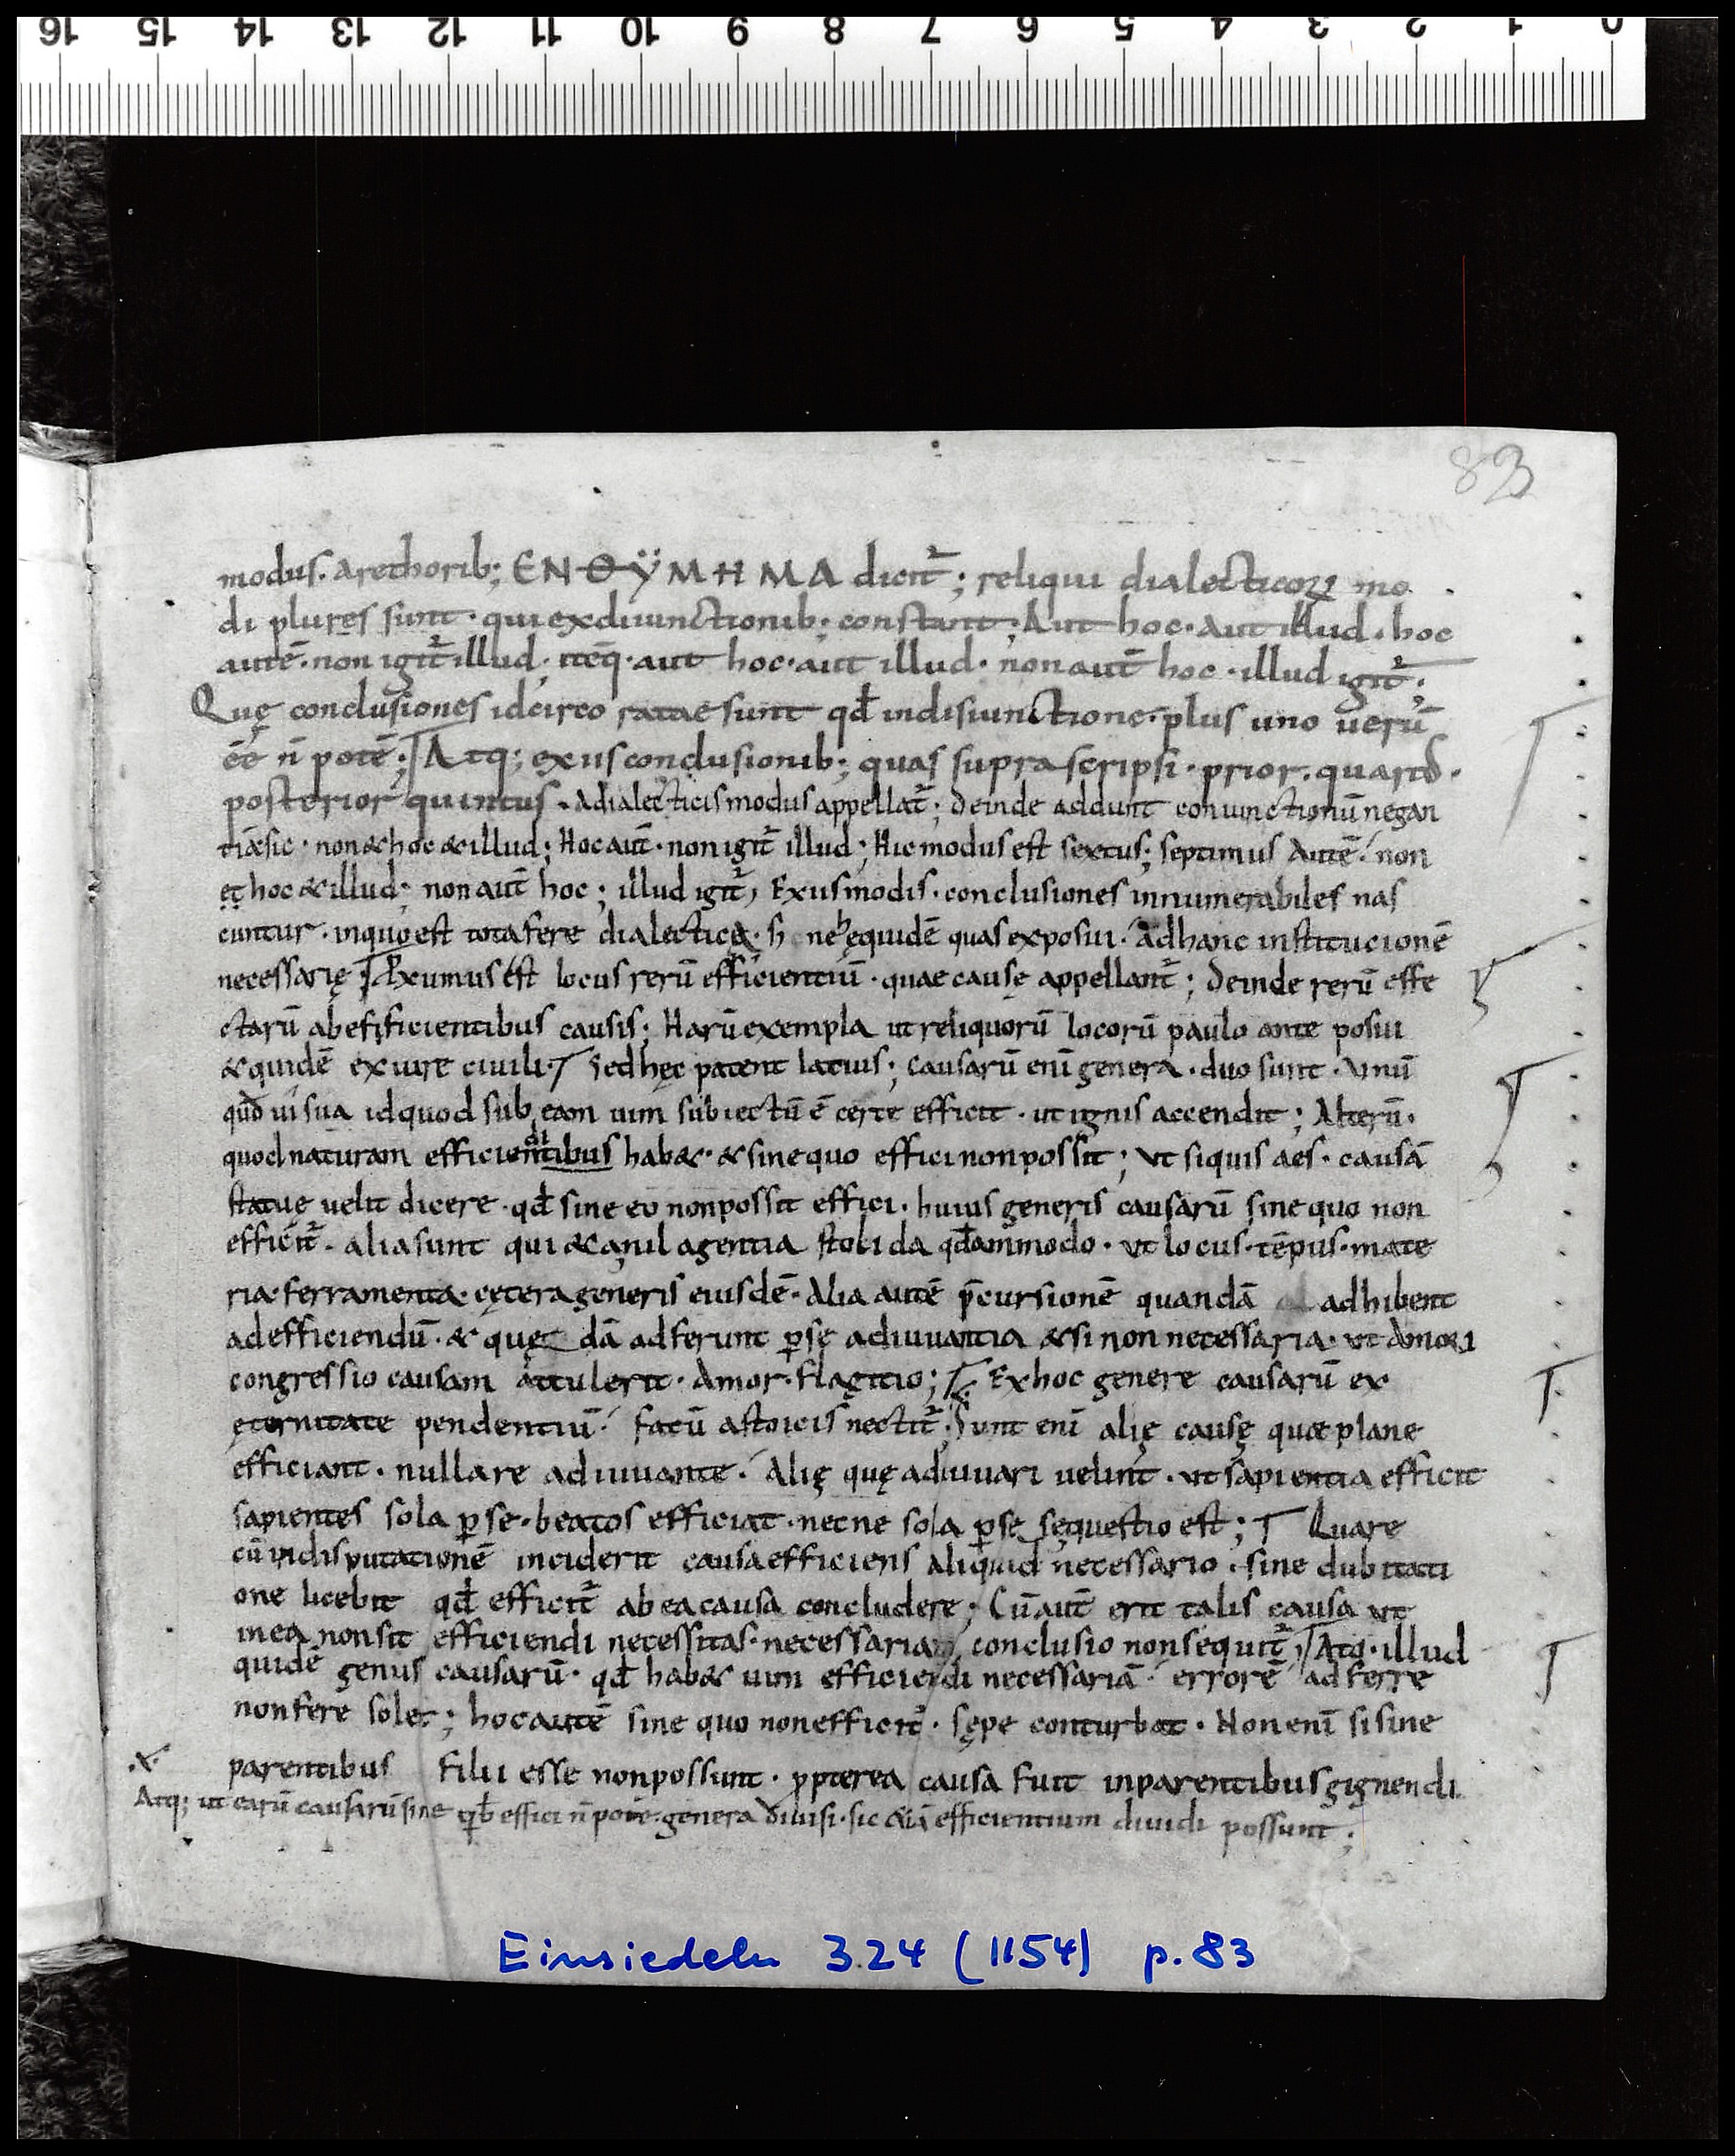 16 15 14 13 12 11 10 9 8 7 6 5 4 3 2 1 0
83
modus. arethorib; ENΘŸMHMA dicit̃; reliqui dialecticoꝝ mo
di plures sunt· qui exdiiunctionib; constant; Aut hoc· aut illud· hoc
autē· non igit̃ illud; itēq· aut hoc· aut illud· non aut̄ hoc· illud igit̃;
Quę conclusiones idcirco ratae sunt qđ indisiunctione· plus uno uerū
ēē n̄ potē; Atq; exiisconclusionib; quas suprascripsi· prior· quarto·
posterior quintus· Adialecticis modus appellat̃; Deinde addunt coniunctionū negan
tiā sic· non & hoc & illud; Hoc aut̄· non igit̃ illud; Hic modus est sextus; septimus Autē· non
et hoc & illud; non aut̄ hoc; illud igit̃; Exiismodis· conclusiones innumerabiles nas
cuntur· inquo est tota fere dialectice· sꝫ ne hę quidē quas exposui· adhanc institucionē
necessarię Proxumus est locus rerū efficientiū· quae causę appellant̃; Deinde rerū effe
ctarū abefificientibus causis; Harū exempla ut reliquorū locorū paulo ante posui
& quidē exiure ciuili· Sed hęc patent latius; Causarū enī genera· duo sunt· Vnū
quod ui sua id quod sub eam uim subiectū ē certe efficit· ut ignis accendit; Alterū·
quod naturam efficientibus hab&· & sine quo effici non possit; Vt siquis aes· causā
statue uelit dicere· qđ sine eo non possit effici· huius generis causarū sine quo non
efficit̃· alia sunt qui&a nil agentia stolida qđammodo· Vt locus· tēpus· mate
ria· ferramenta· cętera generis eiusdē· Alia autē p̄cursionē quandā adhibent
ad efficiendū· & quę dā adferunt ꝑse adiuuantia & si non necessaria· Vt Amori
congressio causam attulerit· Amor· flagitio; Ex hoc genere causarū ex
ęternitate pendentiū· fatū astoicis nectit̃; Sunt enī alię causę quae plane
efficiant· nulla re adiuuante· Alię quę adiuuari uelint· Vt sapientia efficit
sapientes sola ꝑ se· beatos efficiat· necne sola ꝑ se sęquestio est; Quare
cū indisputationē inciderit causa efficiens aliquid necessario· sine dubitati
one licebit qđ efficit̃ ab ea causa concludere; Cū aut̄ erit talis causa Vt
in ea non sit efficiendi necessitas· necessaria conclusio non sequit̃; Atq· illud
quidē genus causarū· qđ hab& uim efficiendi necessariā· errorē adferre
non fere solet; hoc autē sine quo non efficit̃· sępe conturbat· Non enī si sine
parentibus filii esse non possunt· ꝓpterea causa fuit inparentibus gignendi
Atq; ut earū causarū sine qb̄ effici n̄ potē· genera diuisi· sic &iā efficientium diuidi possunt;
Einsiedeln 324 (1154) p. 83